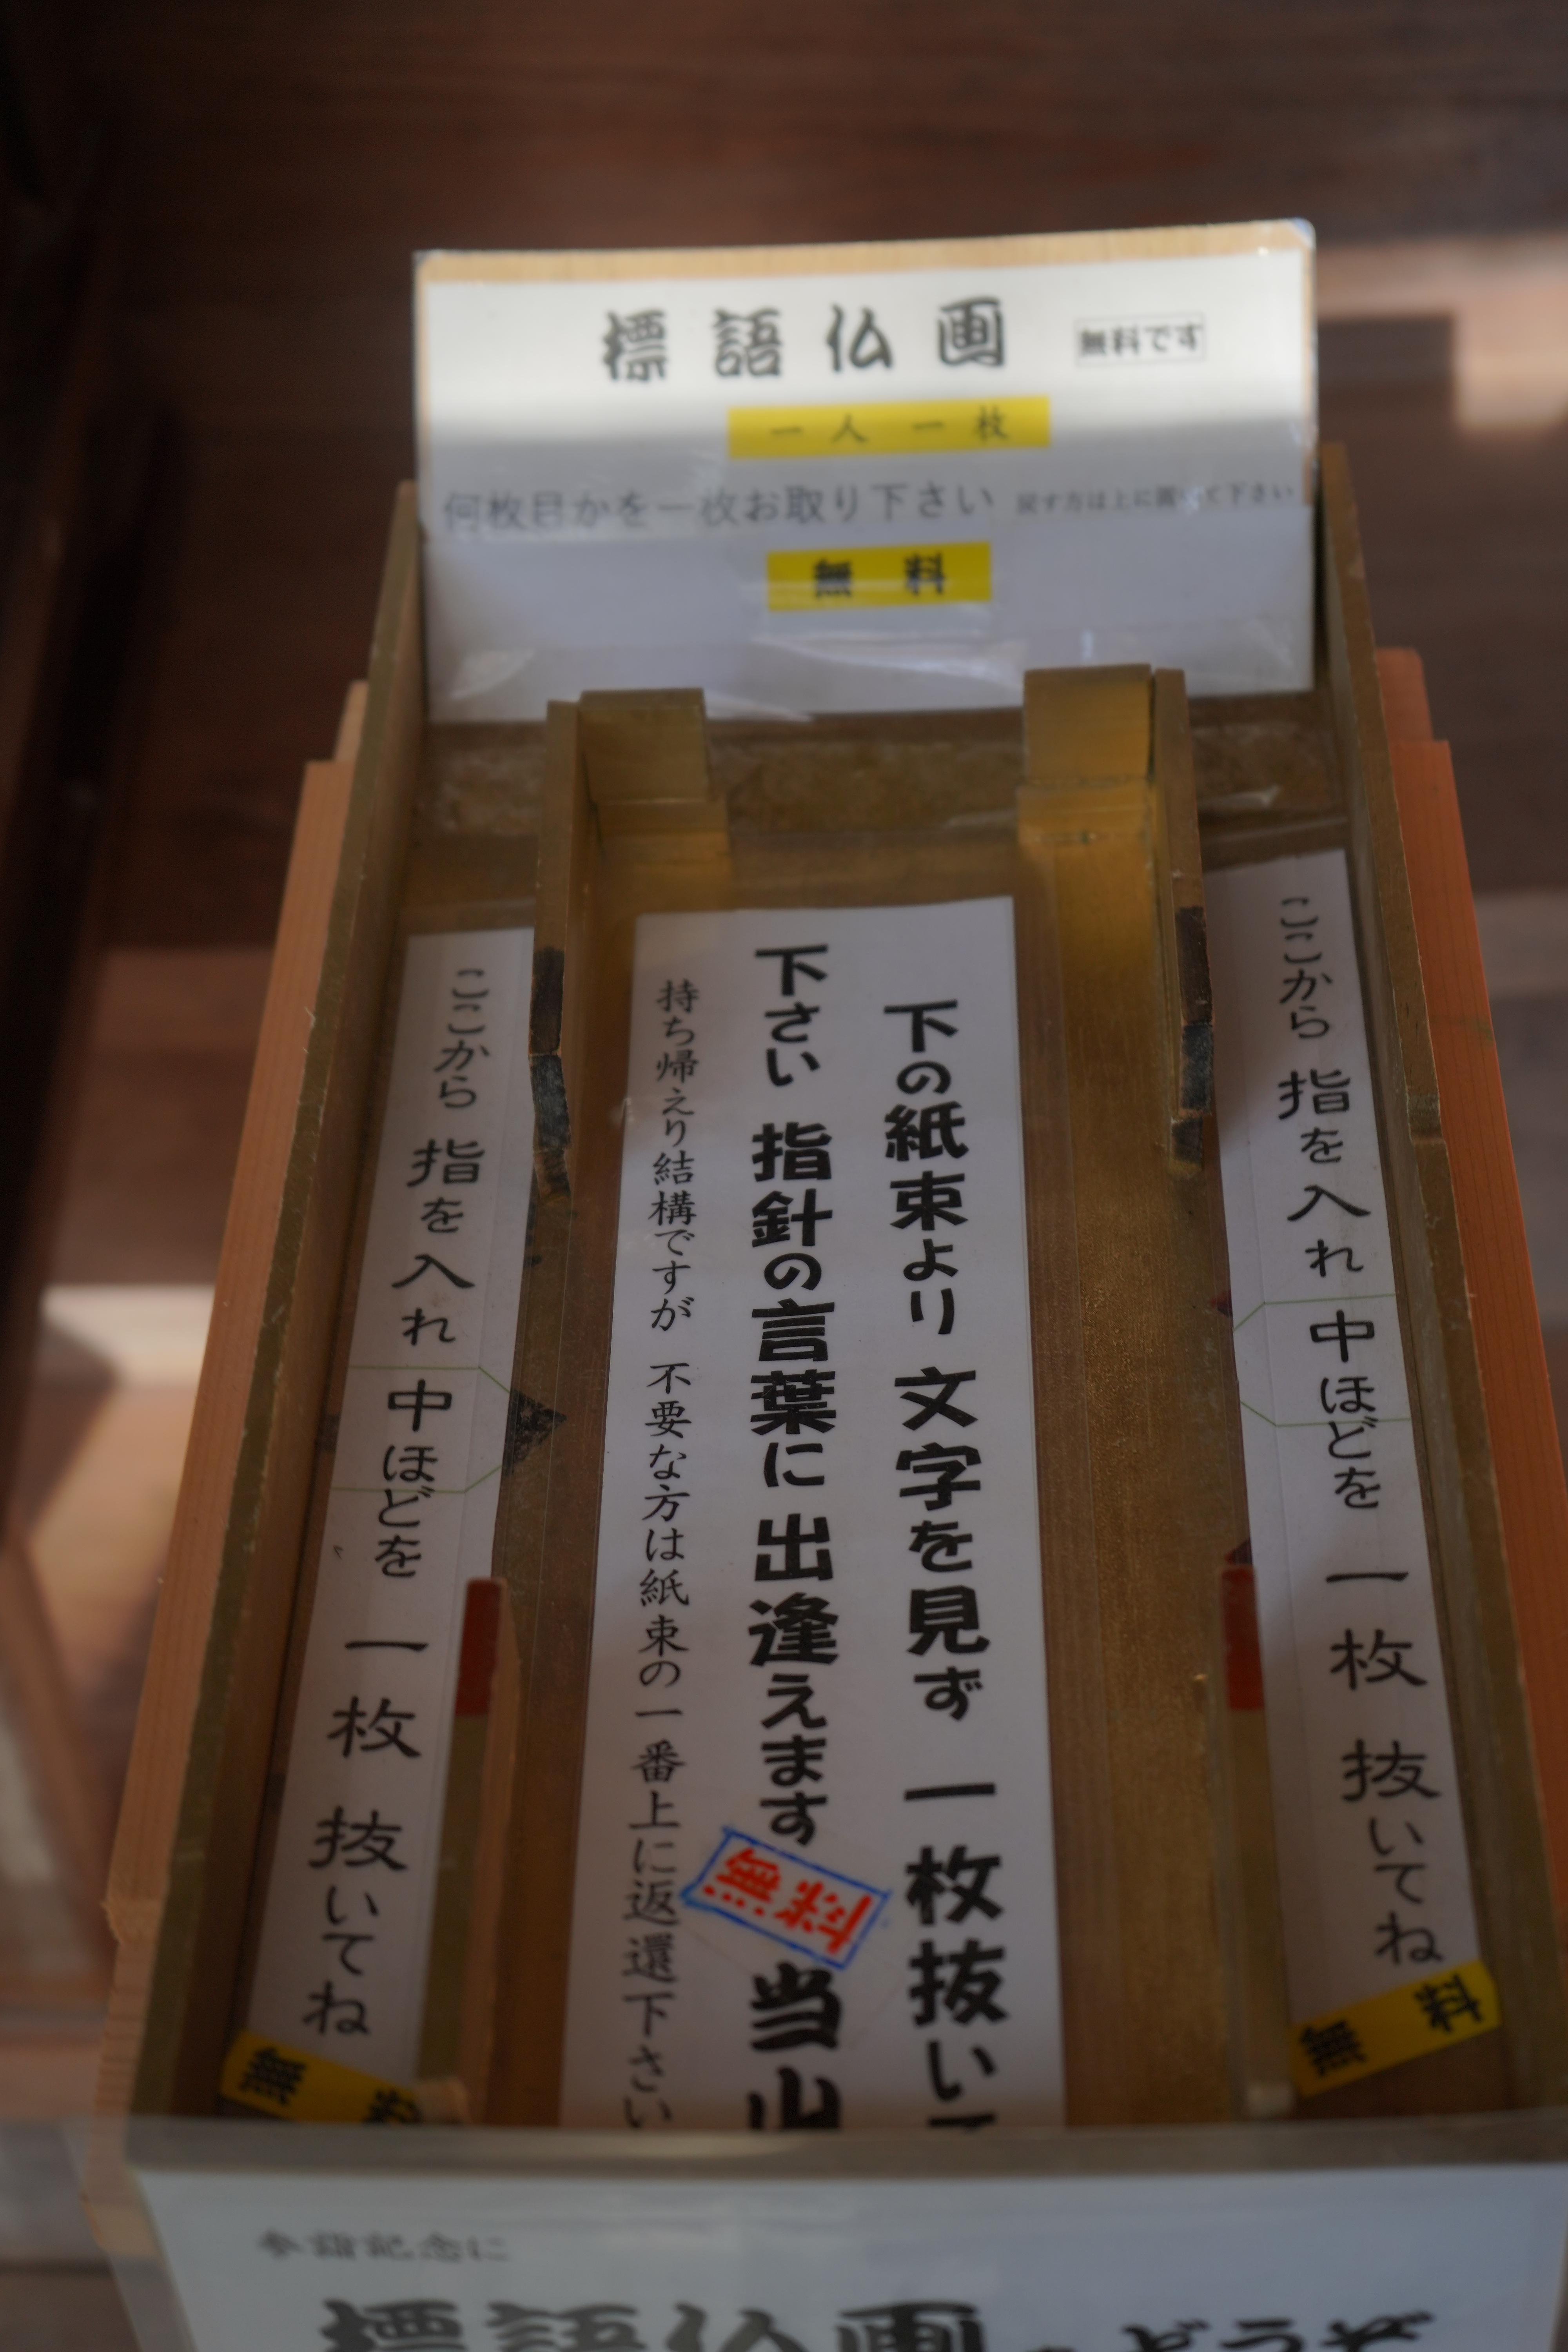 標語仏画 無料です
一人一枚
何枚目かを一枚お取り下さい 戻す方は上に置いて下さい
無料
ここから 指を入れ 中ほどを 一枚 抜いてね
無料
下の紙束より 文字を見ず 一枚抜いて
下さい 指針の言葉に 出逢えます 無料 当山
持ち帰えり結構ですが 不要な方は紙束の一番上に返還下さい
ここから 指を入れ 中ほどを 一枚 抜いてね
無料
参詣記念に
標語仏画 どうぞ